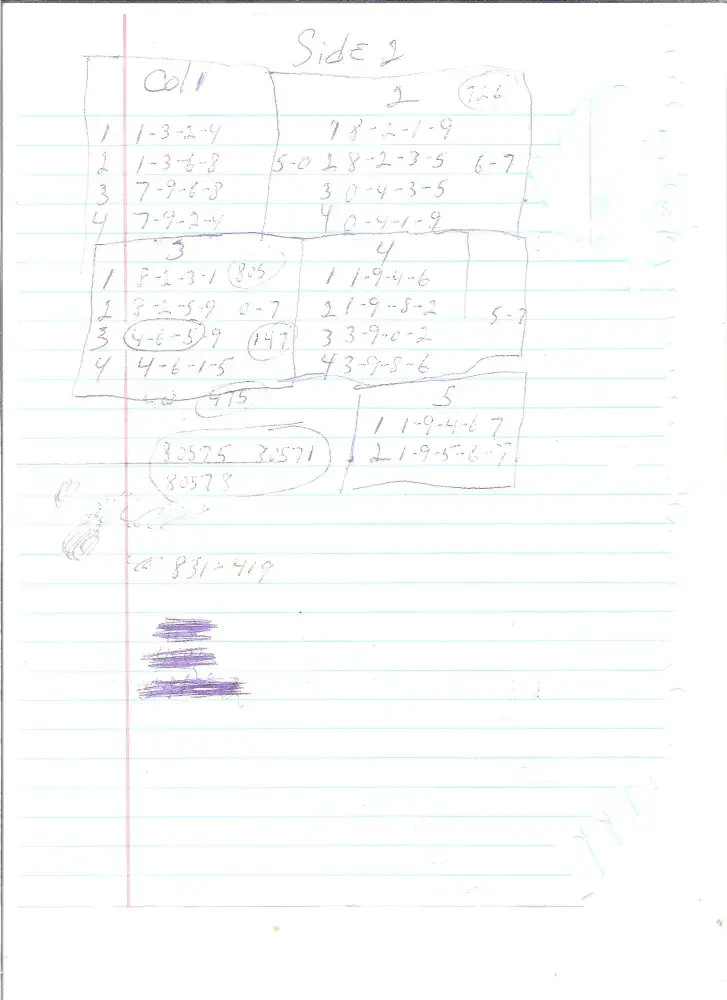 Side 2
Col 1
1 1-3-2-4
2 1-3-6-8
3 7-9-6-8
4 7-9-2-4
5-0
2 726
1 8-2-1-9
2 8-2-3-5 6-7
3 0-4-3-5
4 0-4-1-9
3
1 8-2-3-1 805
2 8-2-5-9 0-7
3 4-6-5-9 147
4 4-6-1-5
975
4
1 1-9-4-6
2 1-9-8-2
3 3-9-0-2
4 3-9-8-6
5-7
5
1 1-9-4-6 7
2 1-9-5-6-7
80575 80571
80578
831-419